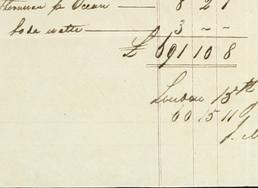 Ocean — 8 2 1
Soda water — 3 – –
£ 691 10 8
London 13th
60 15 11